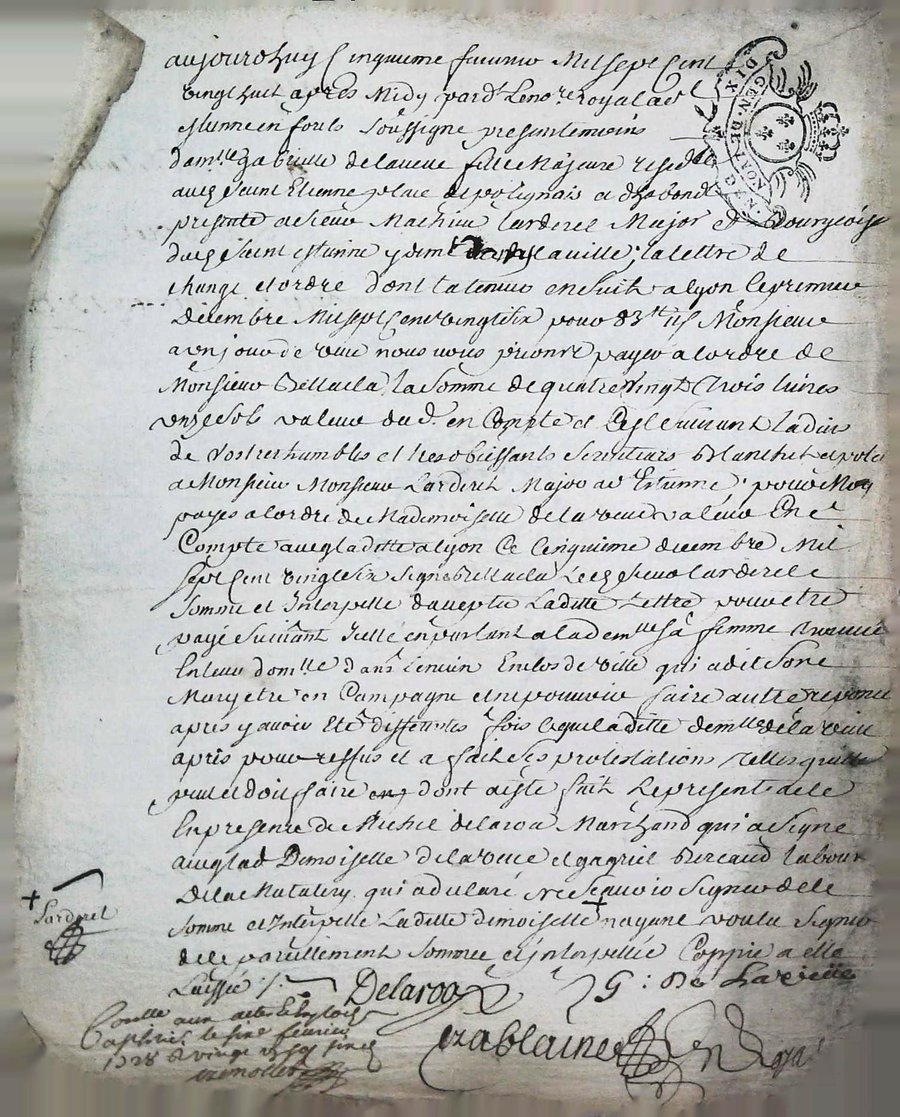 aujourdhuy Cinquieme feuvrier Mil sept Cent
vingt huit après Midy pard.t Le no.re royal a S.t
Estienne en fouls Soussigné presents temoins
dam.lle gabrielle delaveue fille Majeure resid.te
aud Saint Etienne place de polignais a dhabond
presenté a Sieur Mathieu Larderet Major et Bourgeois
dud Saint estienne y dem.t laville, la lettre de
change et ordre dont la teneur en suit a lyon le premier
decembre Mil sept Cent vingt six pour 83.tt 11s Monsieur
a un jour de veue nous vous prions payer a lordre de
Monsieur Bellacla la Somme de quatre vingt trois livres
unze sols valeur dud. en Compte et Cest suivant ladvis
de vos tres humbles et tres obeissants Serviteurs Blanchet
a Monsieur Monsieur Larderet Major a S.t Estienne, pour Moy
payes a lordre de Mademoiselle de la veue valeur En
Compte avec laditte a lyon Ce Cinquieme decembre Mil
sept Cent vingt six signé Bellacla Leq. sieur larderet
Sommé et Interpellé daccepter Laditte Lettre pour etre
payé Suivant Icelle en parlant a la dem.lle Sa femme trouvée
En leur dom.lle dans lenclos de ville qui a dit Son
Mary etre en Campagne et ne pouvoir faire autre reponce
apres y avoir Eté differentes fois Ce que laditte dem.lle de la veue
a pris pour reffus et a fait Ses protestations telles quelle
peut et doit faire dont a esté fait Le present acte
En presence de Michel delaroa Marchand qui a Signé
avec lad Demoiselle de la veue et gagriel Bercaud labour
De la qui a declaré ne Sçavoir Signer de le
Sommé et Interpellé Laditte demoiselle nayant voulu Signer
de le pareillement Sommée et interpellée Coppie a elle
Laissée
Larderet
Delaroa G : De Laveüe
ezablaine
Controllé aux actes
le cinq feuvrier
1728